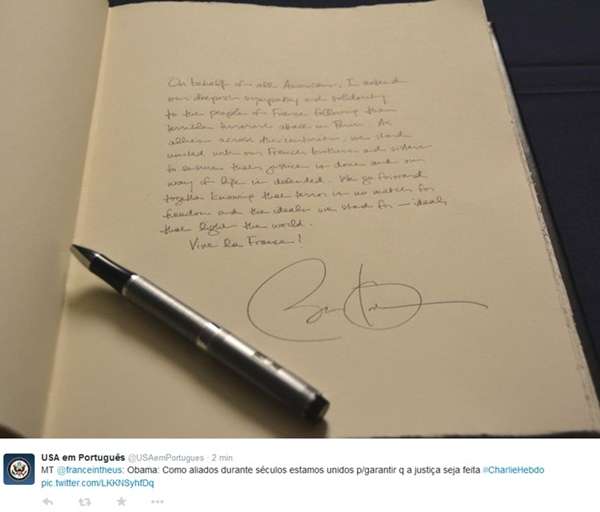 On behalf of all Americans, I extend
our deepest sympathy and solidarity
to the people of France following this
terrible terrorist attack in Paris. As
allies across the centuries, we stand
united with our French brothers and sisters
to ensure that justice is done and our
way of life is defended. We go forward
together knowing that terror is no match for
freedom and the ideals we stand for — ideals
that light the world.
Vive la France!
USA em Português @USAemPortugues · 2 min
MT @franceintheus: Obama: Como aliados durante séculos estamos unidos p/garantir q a justiça seja feita #CharlieHebdo
pic.twitter.com/LKKNSyhfDq